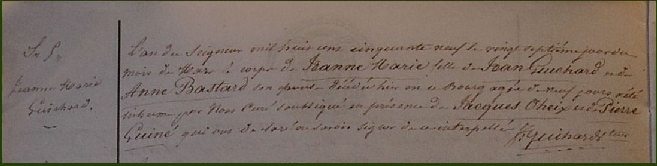 S. P.
Jeanne Marie
Guichard.
L'an du Seigneur mil huit cent cinquante neuf le vingt septième jour du
mois de Mars le corps de Jeanne Marie fille de Jean Guichard et de
Anne Bastard son épouse décédée hier en ce Bourg agée de neuf jours, a été
inhumé par Nous Curé soussigné en présence de Jacques Oheix et de Pierre
Guiné qui ont déclaré ne savoir signer de ce interpellés